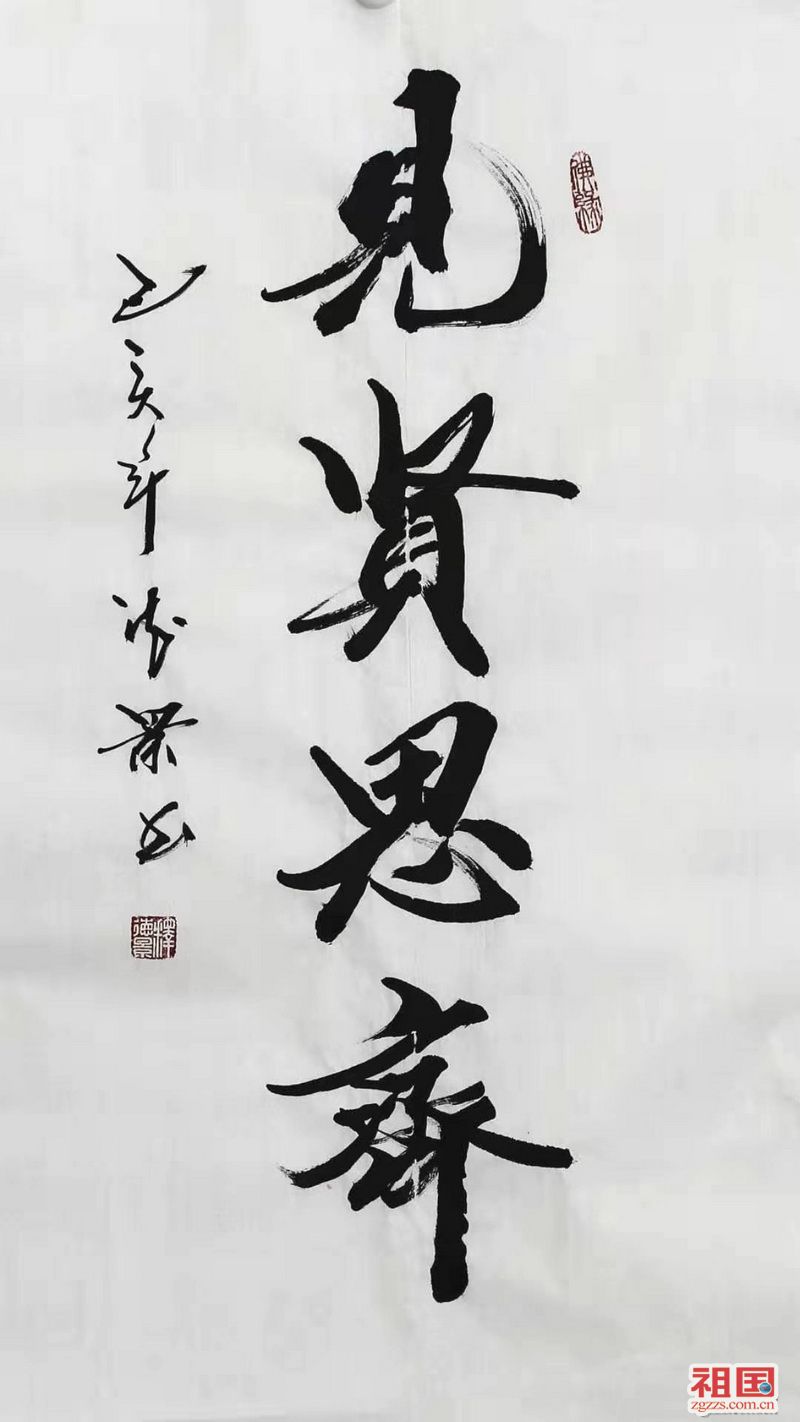 見賢思齊
己亥年 德景书
釋德景
祖国
zgzzs.com.cn